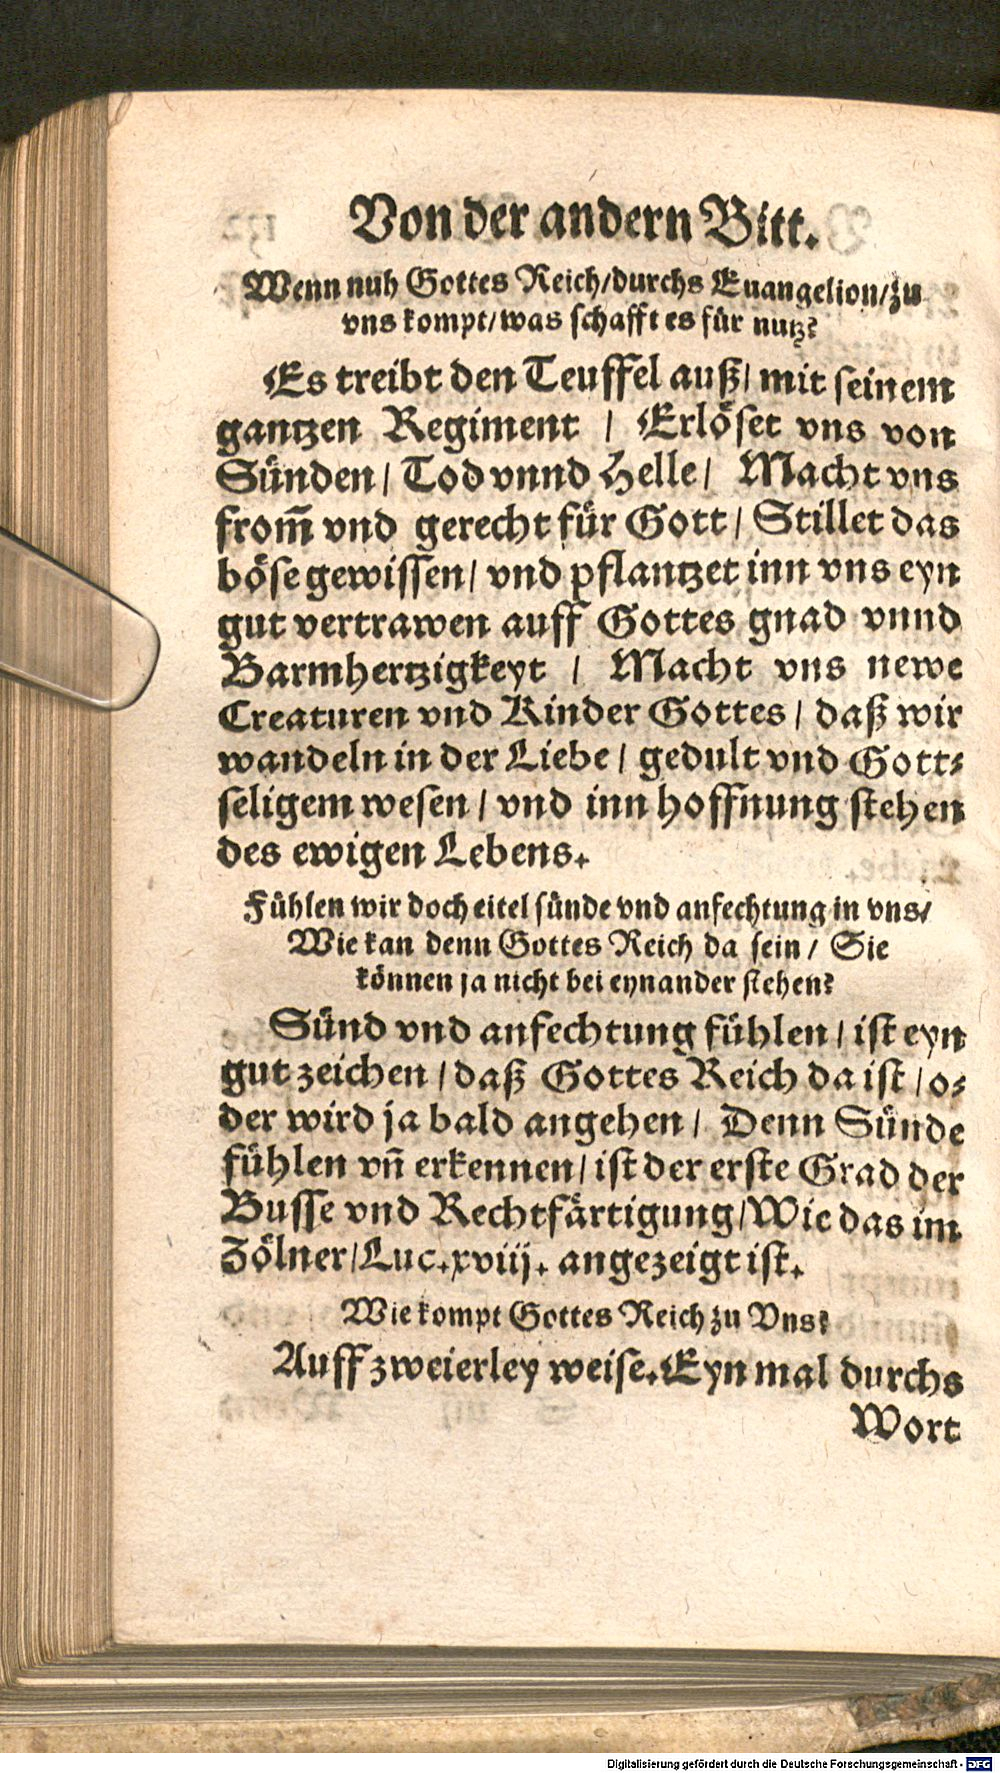 Von der andern Bitt.
Wenn nuh Gottes Reich/durchs Euangelion/zu
vns kompt/was schafft es für nutz?
Es treibt den Teuffel auß/ mit seinem
gantzen Regiment / Erlöset vns von
Sünden/ Tod vnnd Helle/ Macht vns
from̄ vnd gerecht für Gott/ Stillet das
böse gewissen/ vnd pflantzet inn vns eyn
gut vertrawen auff Gottes gnad vnnd
Barmhertzigkeyt / Macht vns newe
Creaturen vnd Kinder Gottes/ daß wir
wandeln in der Liebe/ gedult vnd Gott⸗
seligem wesen/ vnd inn hoffnung stehen
des ewigen Lebens.
Fühlen wir doch eitel sünde vnd anfechtung in vns/
Wie kan denn Gottes Reich da sein/ Sie
können ja nicht bei eynander stehen?
Sünd vnd anfechtung fühlen/ ist eyn
gut zeichen/daß Gottes Reich da ist/o⸗
der wird ja bald angehen/ Denn Sünde
fühlen vn̄ erkennen/ist der erste Grad der
Busse vnd Rechtfärtigung/Wie das im
Zölner/Luc.xviij. angezeigt ist.
Wie kompt Gottes Reich zu Vns?
Auff zweierley weise.Eyn mal durchs
Wort
Digitalisierung gefördert durch die Deutsche Forschungsgemeinschaft - DFG